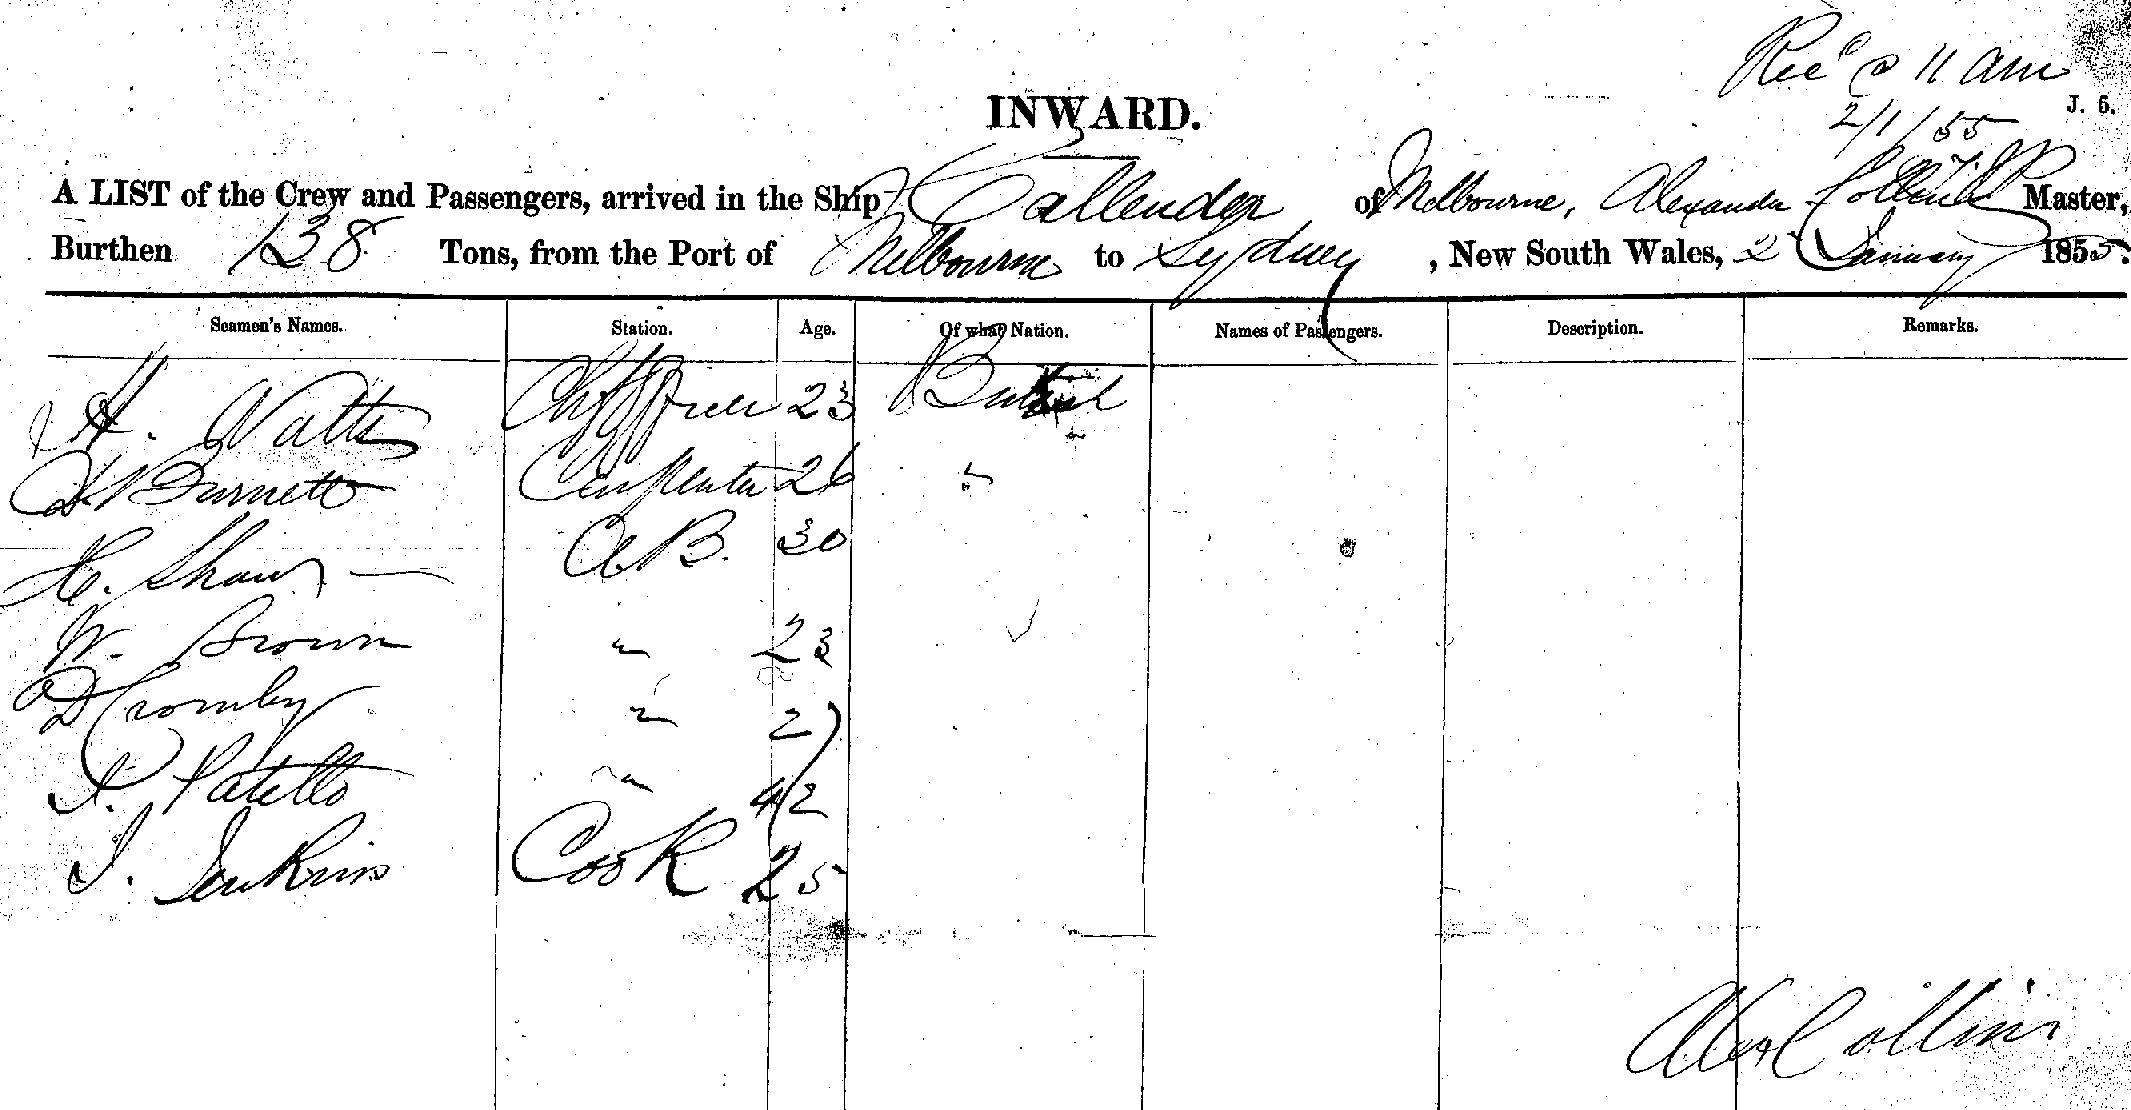 Recd @ 11 am
J. 6.
2/1/55
INWARD.
A LIST of the Crew and Passengers, arrived in the Ship Callender of Melbourne, Alexander Master,
Burthen 138 Tons, from the Port of Melbourne to Sydney, New South Wales, 2 January 1855.
Seamen's Names. Station. Age. Of what Nation. Names of Passengers. Description. Remarks.
H. Watts 23 British
Burnett Carpenter 26 "
H. Shaw AB. 30
W. Brown " 23
D Cromby " 27
Patello " 42
J. Jenkins Cook 25
Alex Collins